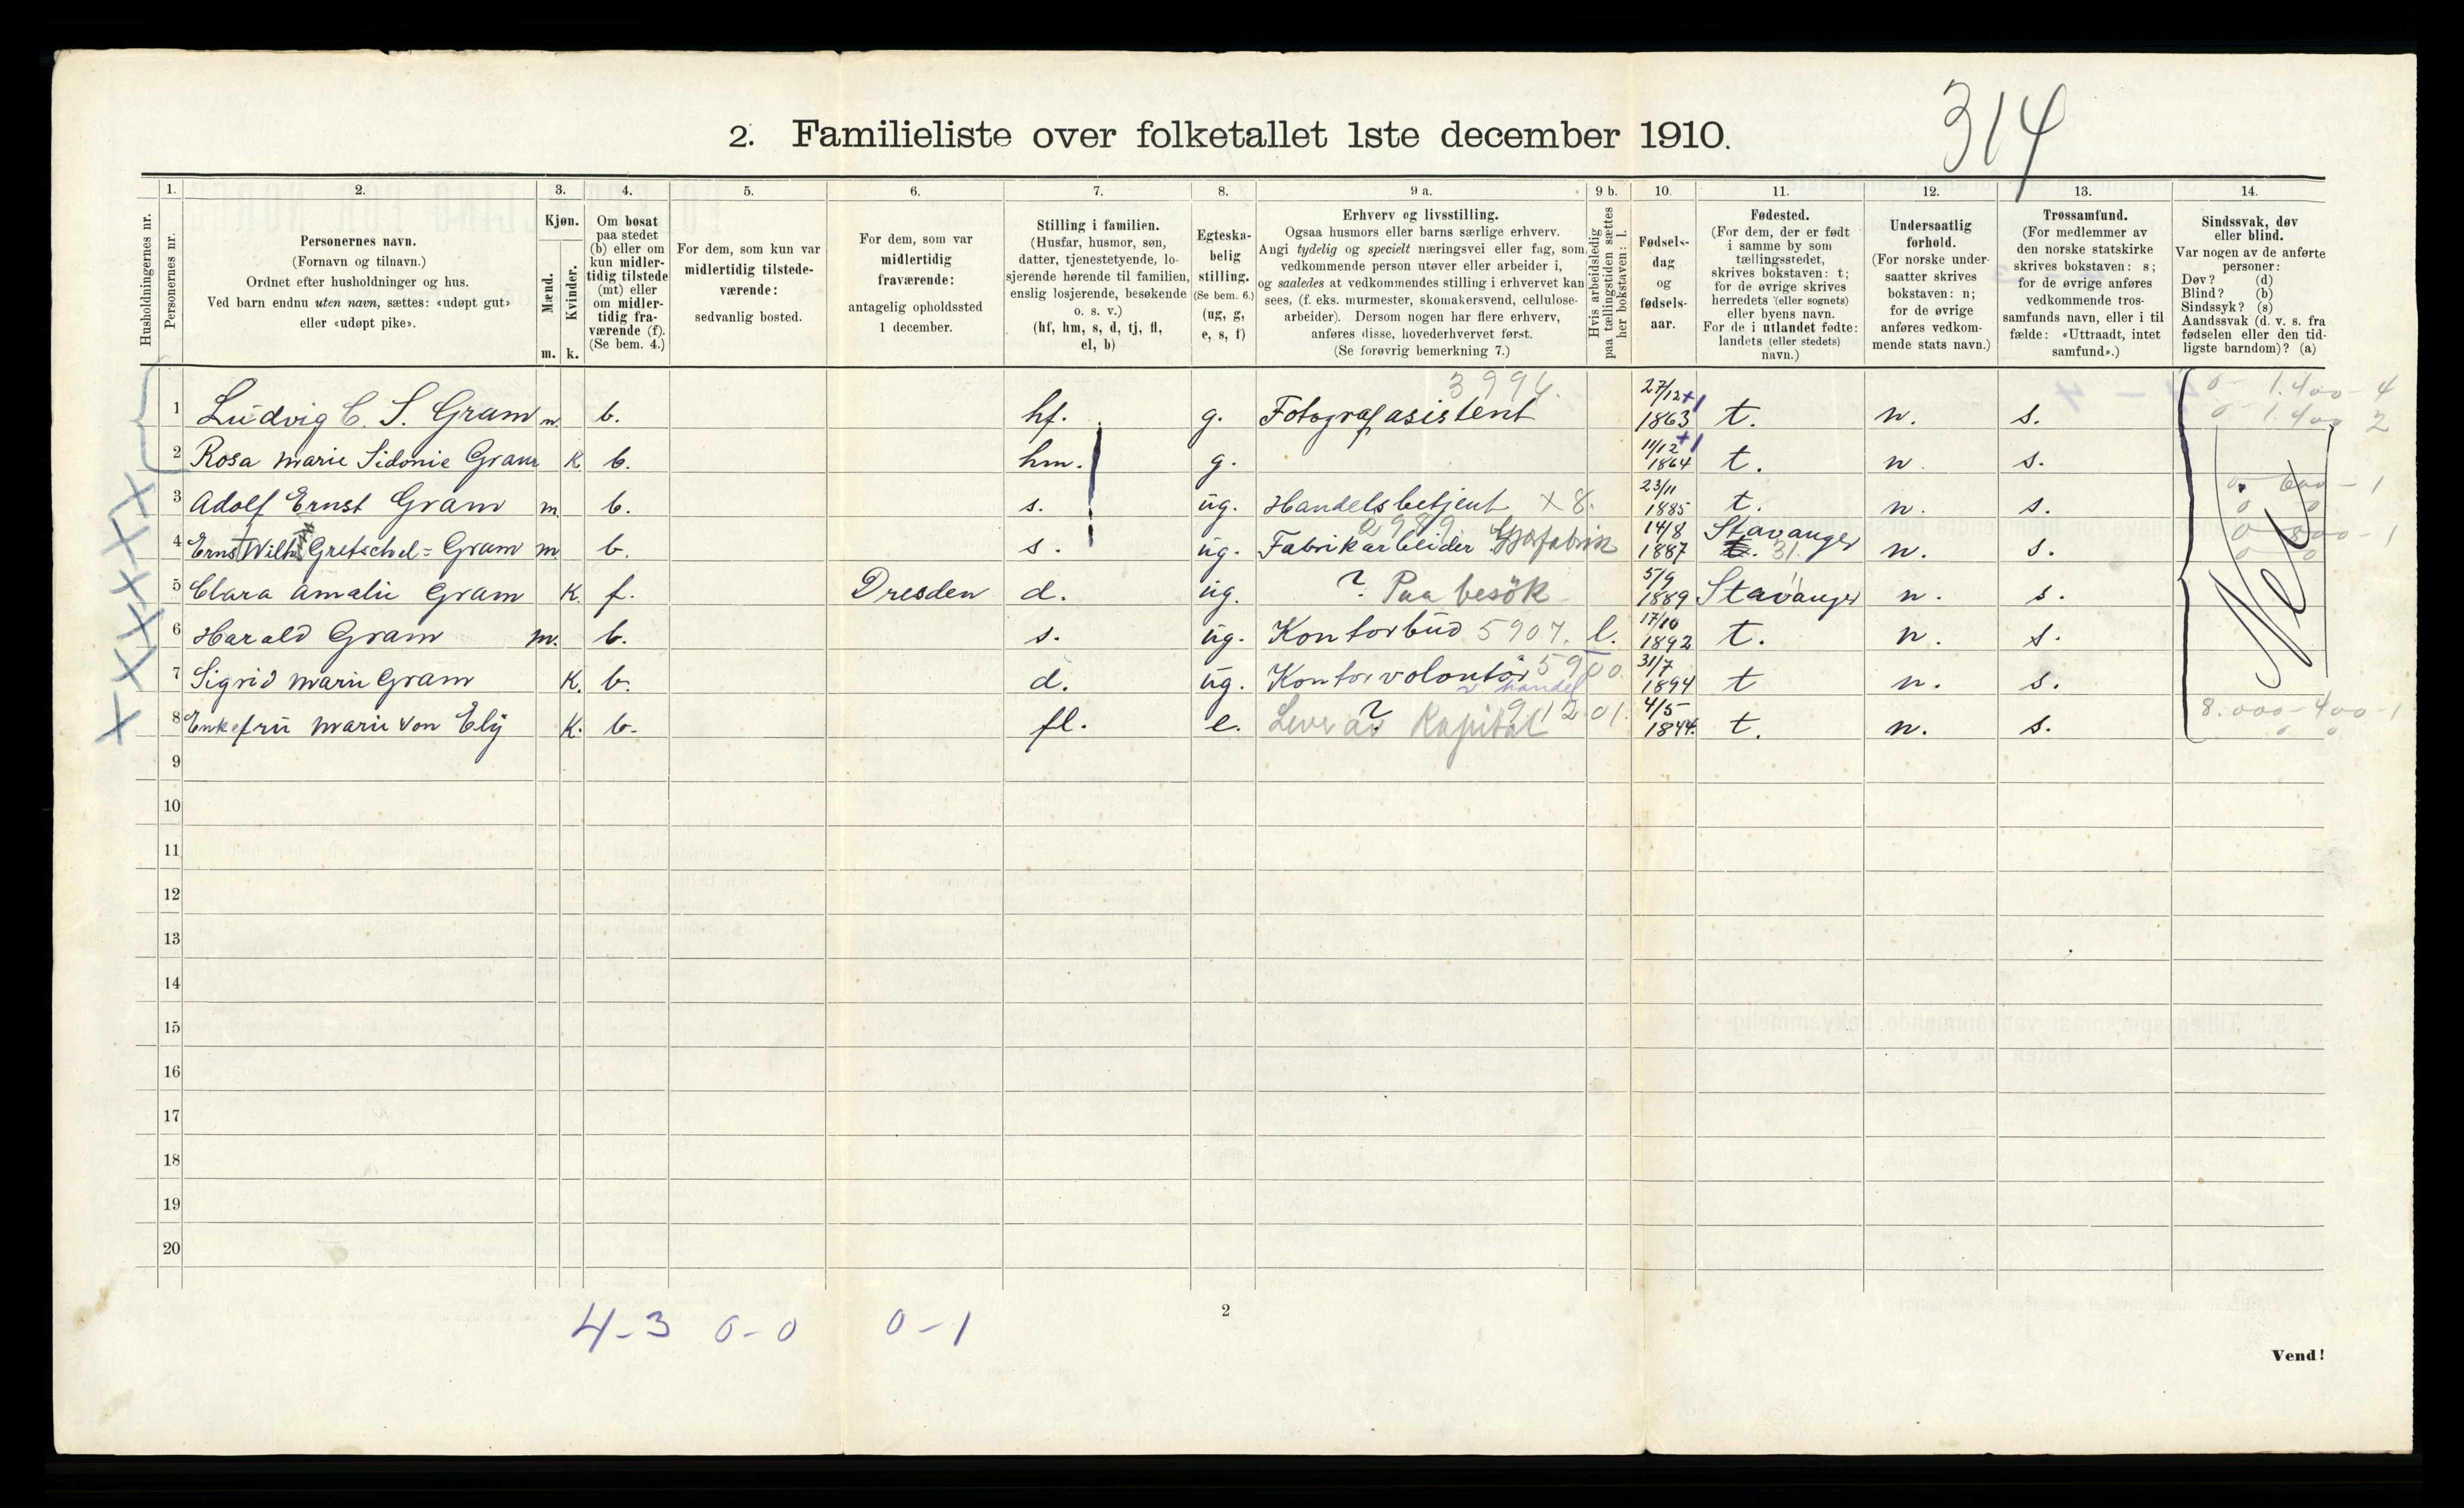 314
2. Familieliste over folketallet 1ste december 1910.
Husholdningernes nr.
1. Personernes nr.
2. Personernes navn.
(Fornavn og tilnavn.)
Ordnet efter husholdninger og hus.
Ved barn endnu uten navn, sættes: «udøpt gut»
eller «udøpt pike».
3. Kjøn.
Mænd. m.
Kvinder. k.
4. Om bosat
paa stedet
(b) eller om
kun midler-
tidig tilstede
(mt) eller
om midler-
tidig fra-
værende (f).
(Se bem. 4.)
5. For dem, som kun var
midlertidig tilstede-
værende:
sedvanlig bosted.
6. For dem, som var
midlertidig
fraværende:
antagelig opholdssted
1 december.
7. Stilling i familien.
(Husfar, husmor, søn,
datter, tjenestetyende, lo-
sjerende hørende til familien,
enslig losjerende, besøkende
o. s. v.)
(hf, hm, s, d, tj, fl,
el, b)
8. Egteska-
belig
stilling.
(Se bem. 6.)
(ug, g,
e, s, f)
9 a. Erhverv og livsstilling.
Ogsaa husmors eller barns særlige erhverv.
Angi tydelig og specielt næringsvei eller fag, som
vedkommende person utøver eller arbeider i,
og saaledes at vedkommendes stilling i erhvervet kan
sees, (f. eks. murmester, skomakersvend, cellulose-
arbeider). Dersom nogen har flere erhverv,
anføres disse, hovederhvervet først.
(Se forøvrig bemerkning 7.)
9 b. Hvis arbeidsledig
paa tællingstiden sættes
her bokstaven: l.
10. Fødsels-
dag
og
fødsels-
aar.
11. Fødested.
(For dem, der er født
i samme by som
tællingsstedet,
skrives bokstaven: t;
for de øvrige skrives
herredets (eller sognets)
eller byens navn.
For de i utlandet fødte:
landets (eller stedets)
navn.)
12. Undersaatlig
forhold.
(For norske under-
saatter skrives
bokstaven: n;
for de øvrige
anføres vedkom-
mende stats navn.)
13. Trossamfund.
(For medlemmer av
den norske statskirke
skrives bokstaven: s;
for de øvrige anføres
vedkommende tros-
samfunds navn, eller i til
fælde: «Uttraadt, intet
samfund».)
14. Sindssvak, døv
eller blind.
Var nogen av de anførte
personer:
Døv? (d)
Blind? (b)
Sindssyk? (s)
Aandssvak (d. v. s. fra
fødselen eller den tid-
ligste barndom)? (a)
1 Ludvig C. S. Gram m. b. hf. g. Fotografasistent 3994. 27/12 1863 t. n. s. 0 - 1.400 - 4
0 - 1.400 2
2 Rosa Marie Sidonie Gram K b. hm. g. 11/12 1864 t. n. s.
3 Adolf Ernst Gram m. b. s. ug. Handelsbetjent X 8. 23/11 1885 t. n. s. 0 - 600 - 1
0 0
4 Ernst Wilh. Gretschel=Gram m. b. s. ug. Fabrikarbeider 2989 14/8 1887 Stavanger t. 31. n. s. 0 - 800 - 1
0 0
5 Clara Amalie Gram K. f. Dresden d. ug. ? Paa besök 5/9 1889 Stavanger n. s.
6 Harald Gram m. b. s. ug. Kontorbud 5907. l. 17/10 1892 t. n. s.
7 Sigrid Marie Gram K. b. d. ug. Kontorvolontör 5900. v. handel 31/7 1894 t n. s.
8 Enkefru Marie von Ely K. b. fl. e. ? Lever av Kapital 91201. 4/5 1844. t. n. s. 8.000 - 400 - 1
0 0
Nei
9
10
11
12
13
14
15
16
17
18
19
20
4-3 0-0 0-1
2
Vend!